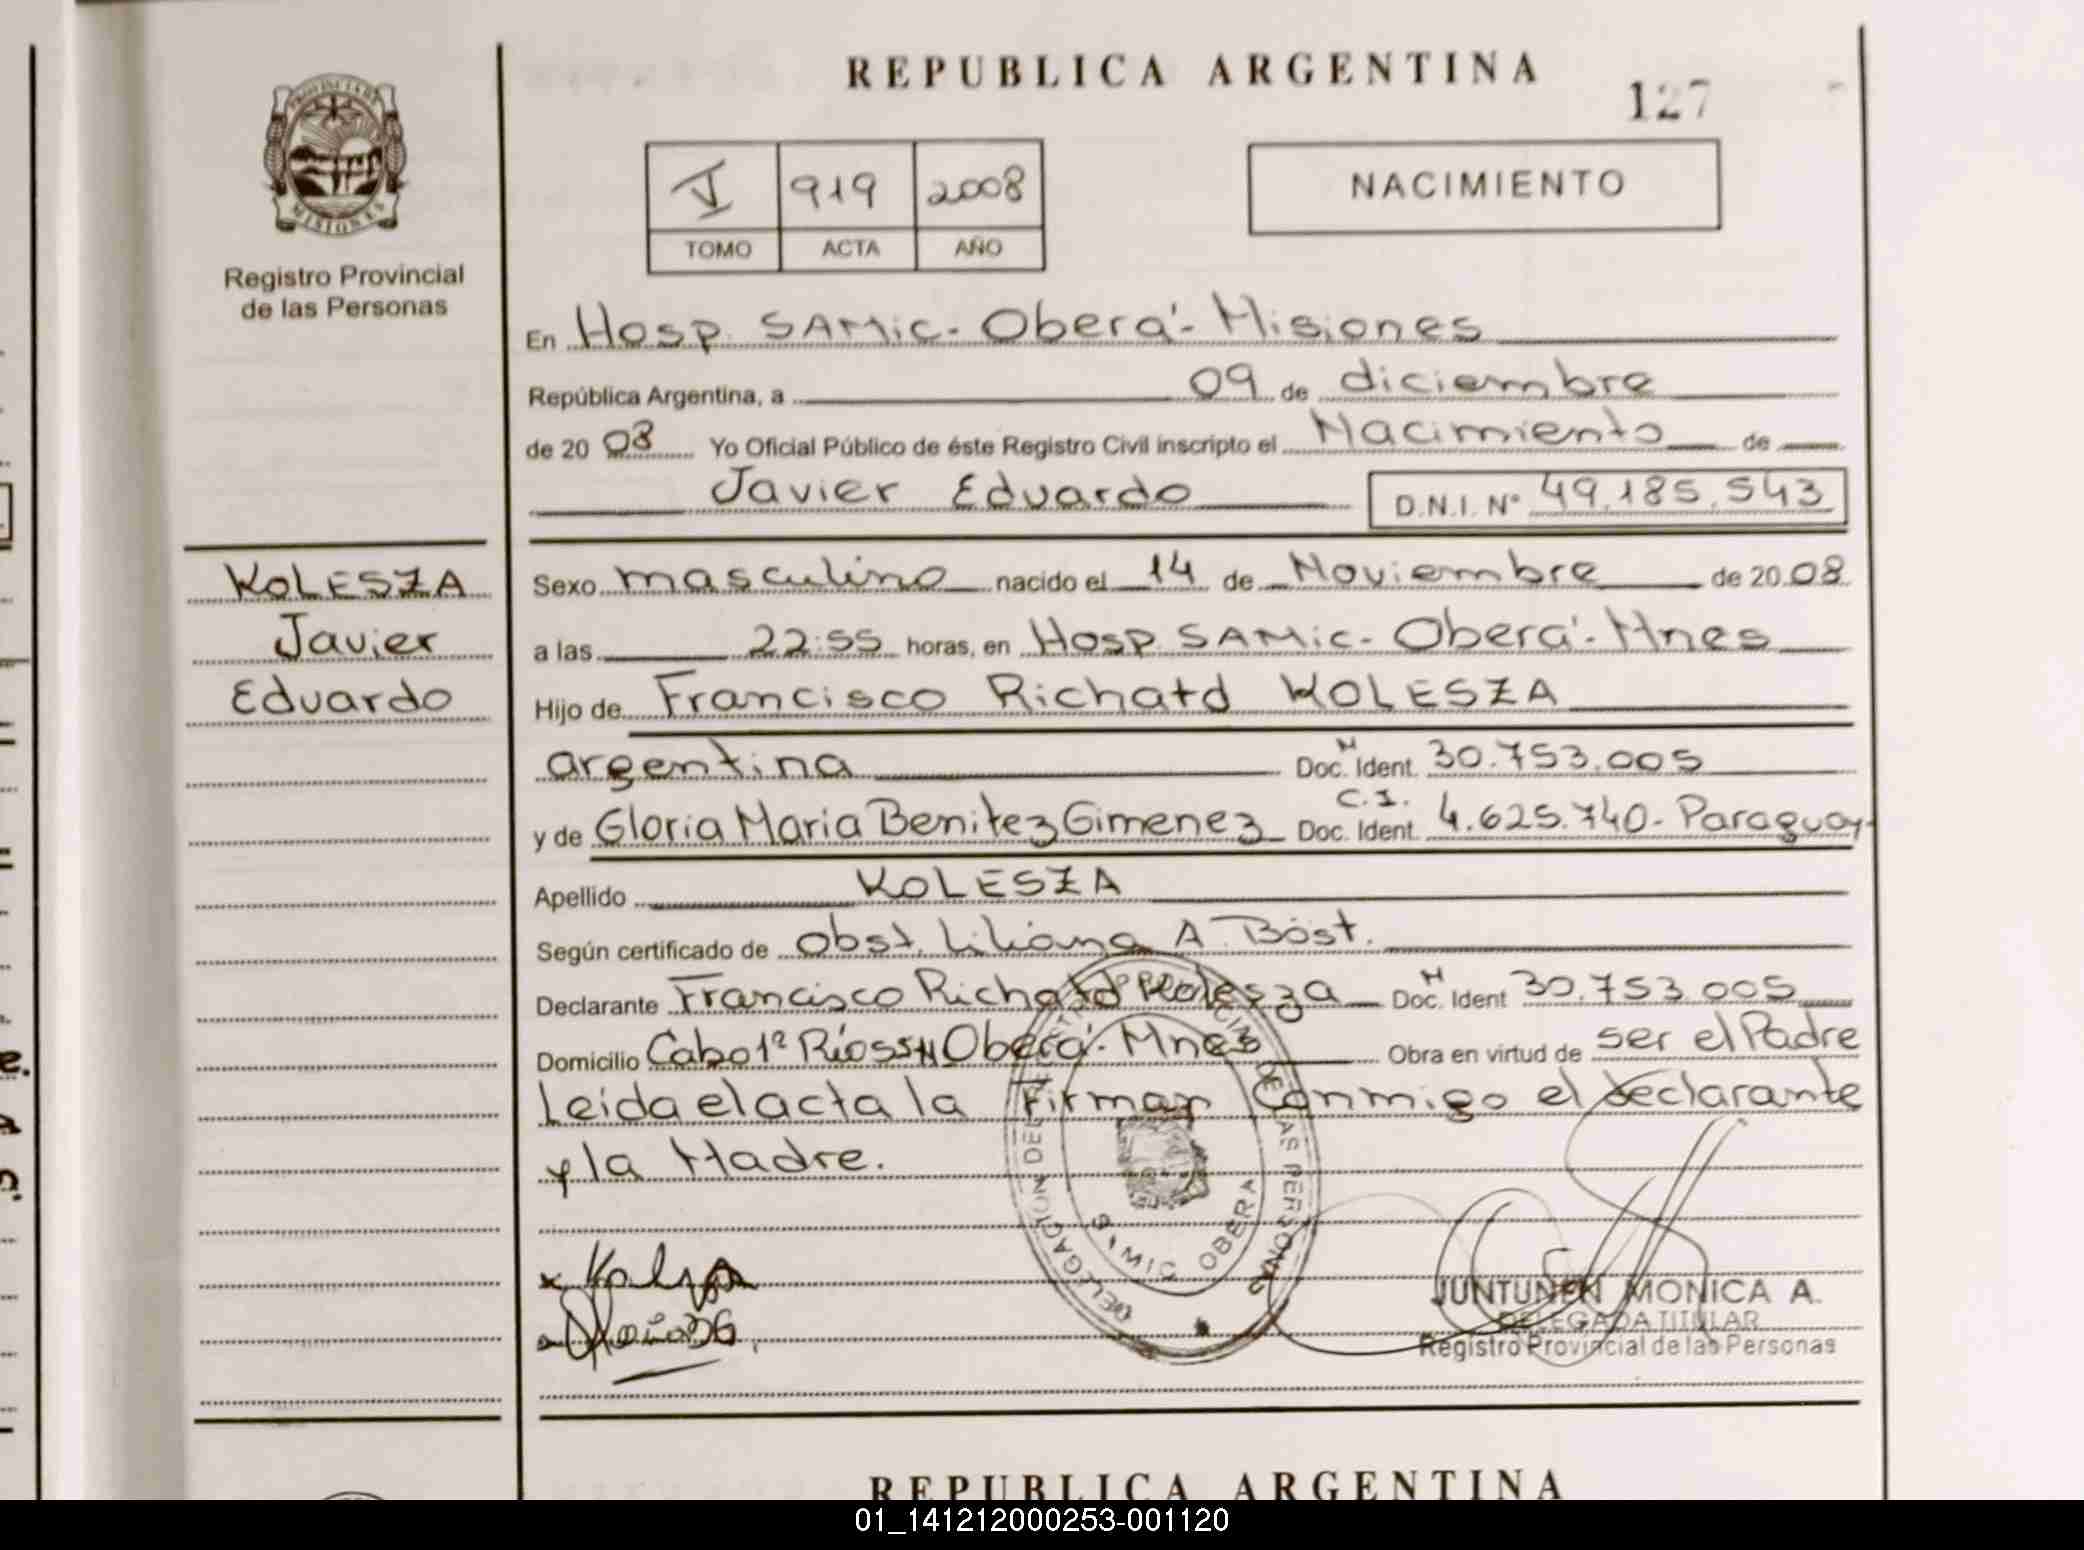 REPUBLICA ARGENTINA
127
PROVINCIA DE
MISIONES
Registro Provincial
de las Personas
V 919 2008
TOMO ACTA AÑO
NACIMIENTO
En Hosp. SAMic- Oberá - Misiones
República Argentina, a 09 de diciembre
de 20 08 Yo Oficial Público de éste Registro Civil inscripto el Nacimiento de
Javier Eduardo D.N.I. Nº 49.185.543
KOLESZA
Javier
Eduardo
Sexo masculino nacido el 14 de Noviembre de 20 08
a las 22:55 horas, en Hosp. SAMic- Oberá - Mnes
Hijo de Francisco Richatd KOLESZA
argentina Doc. N Ident. 30.753.005
y de Gloria Maria Benitez Gimenez C.I. Doc. Ident. 4.625.740- Paraguay-
Apellido KOLESZA
Según certificado de Obst. Liliana A. Böst.
Declarante Francisco Richatd Kolesza Doc. N Ident 30.753.005
Domicilio Cabo 1º Ríos SN Oberá - Mnes Obra en virtud de ser el Padre
Leída el acta la Firman Conmigo el declarante
y la Madre.
DELEGACION DEL REGISTRO PROVINCIAL DE LAS PERSONAS
SAMIC OBERA
JUNTUNEN MONICA A.
DELEGADA TITULAR
Registro Provincial de las Personas
REPUBLICA ARGENTINA
01_141212000253-001120